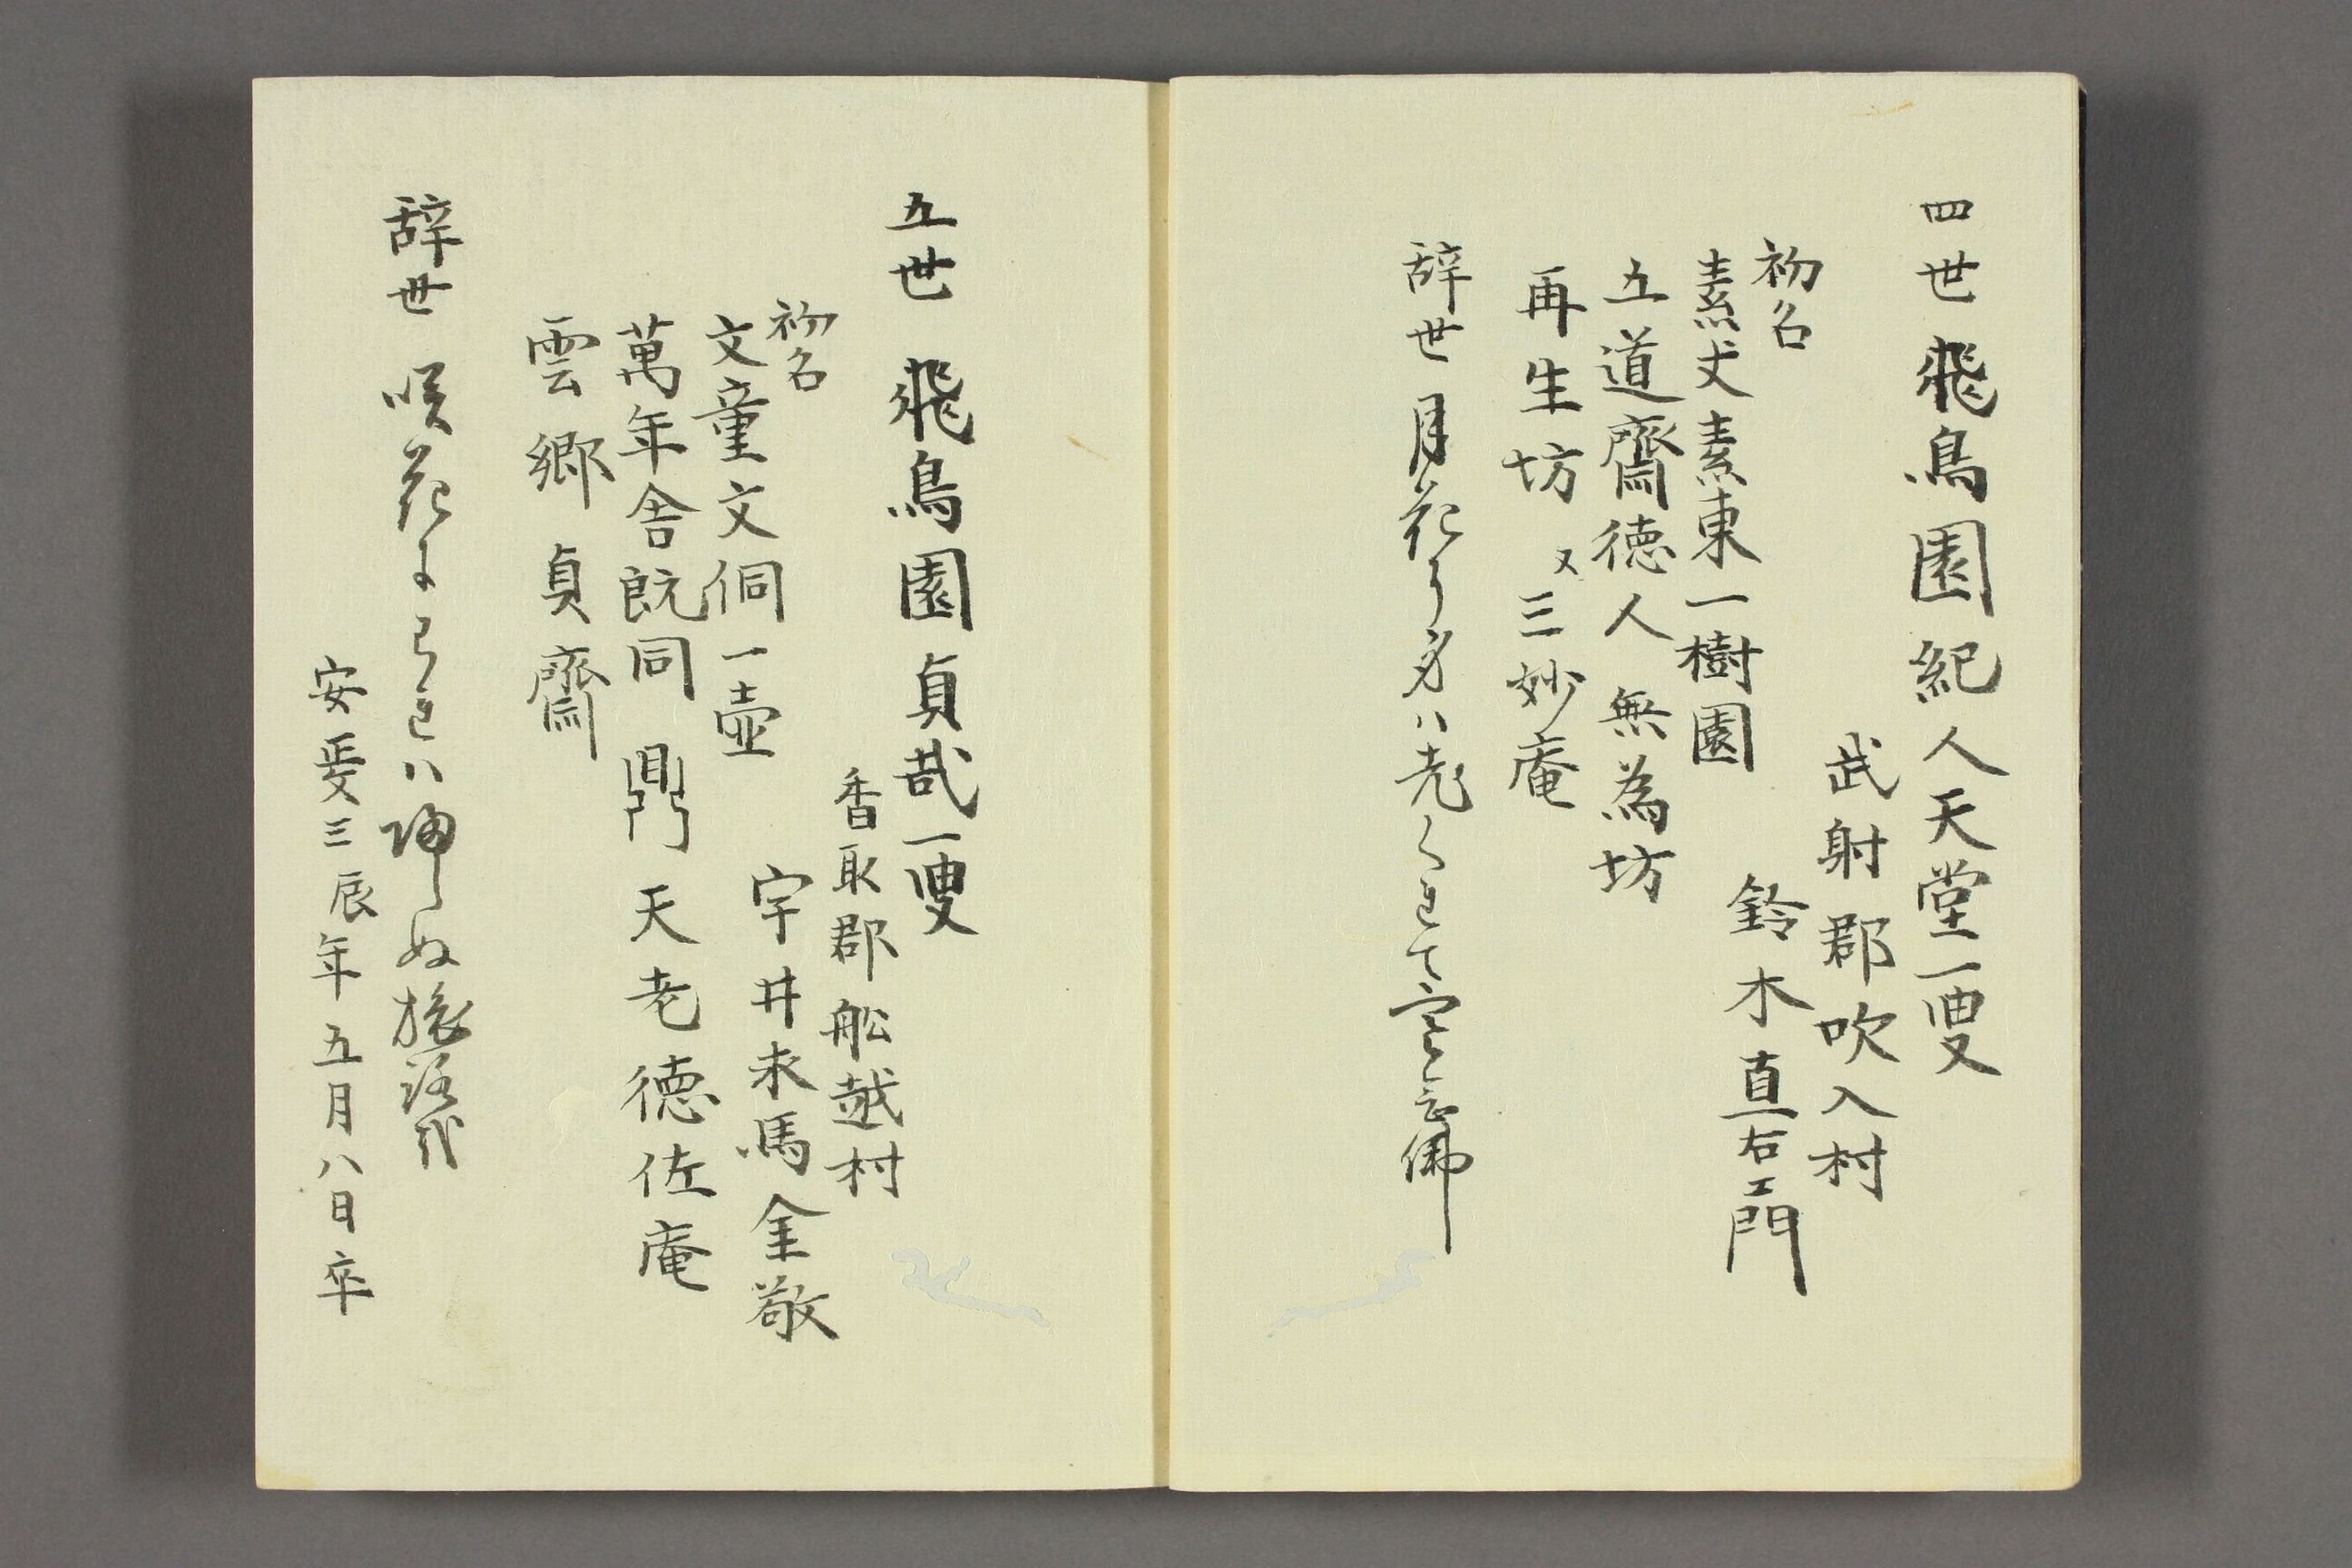 四世飛鳥園紀人天堂一叟
武射郡吹入村
鈴木直右エ門
初名
素丈素東一樹園
五道齋徳人無為坊
再生坊又三妙庵
辞世月花の身ハ老くれて空言佛
五世飛鳥園貞哉一叟
香取郡舩越村
宇井求馬金敬
初名
文童文侗一壺
萬年舎既同鼎天老徳佐庵
雲郷貞齋
辞世咲花によらはハ帰しぬ旅
安政三辰年五月八日卒